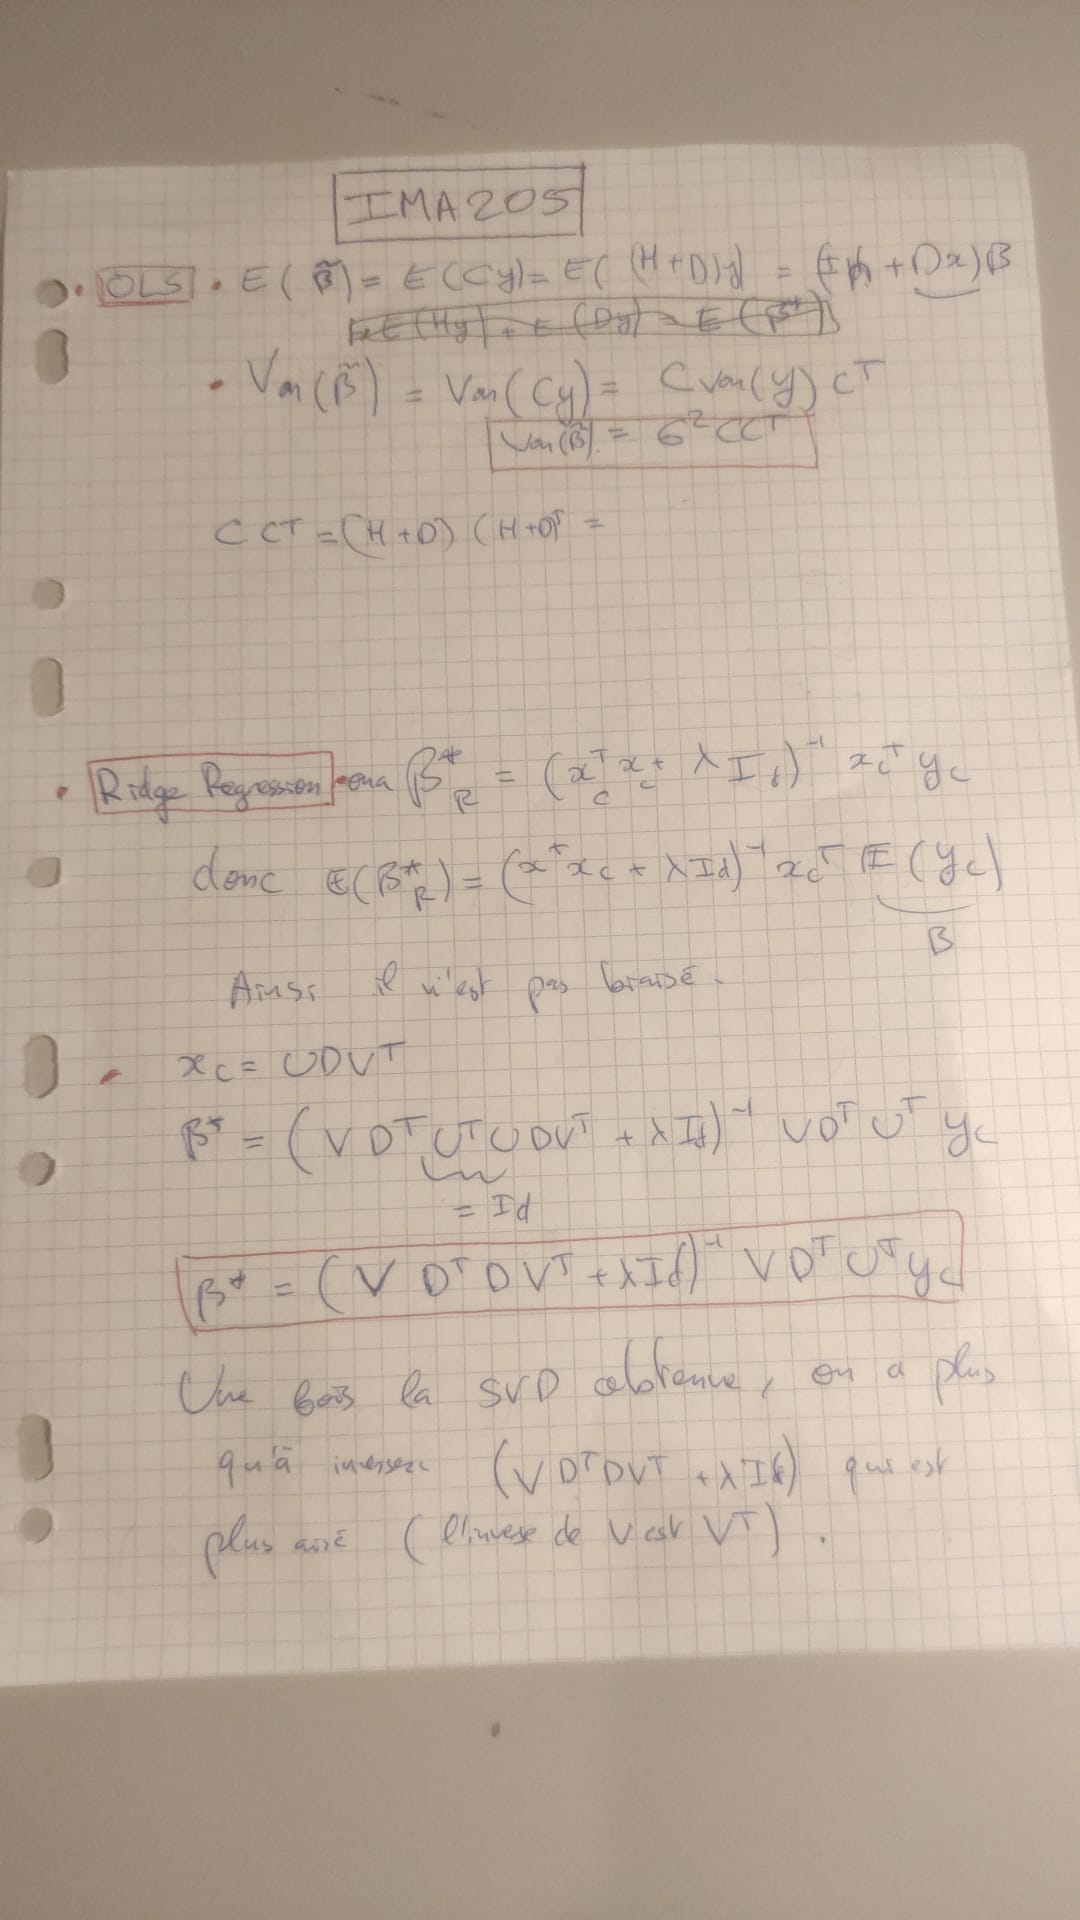 IMA205
• OLS • E(β̃) = E(Cy) = E((H+D)y) = (Id + Dx)β
= E(Hy) + E(Dy) = E(β*)
• Var(β̃) = Var(Cy) = C var(y) C^T
Var(β̃) = σ² CC^T
CC^T = (H+D) (H+D)^T =
• Ridge Regression • on a β*_R = (x_c^T x_c + λ I_d)^-1 x_c^T y_c
donc E(β*_R) = (x^T x_c + λ Id)^-1 x_c^T E(y_c)
β
Ainsi il n'est pas biaisé.
x_c = UDV^T
β* = (V D^T U^T U D V^T + λ Id)^-1 V D^T U^T y_c
= Id
β* = (V D^T D V^T + λ Id)^-1 V D^T U^T y_c
Une fois la SVD obtenue, on a plus
qu'à inverser (V D^T D V^T + λ Id) qui est
plus aisé (l'inverse de V est V^T).